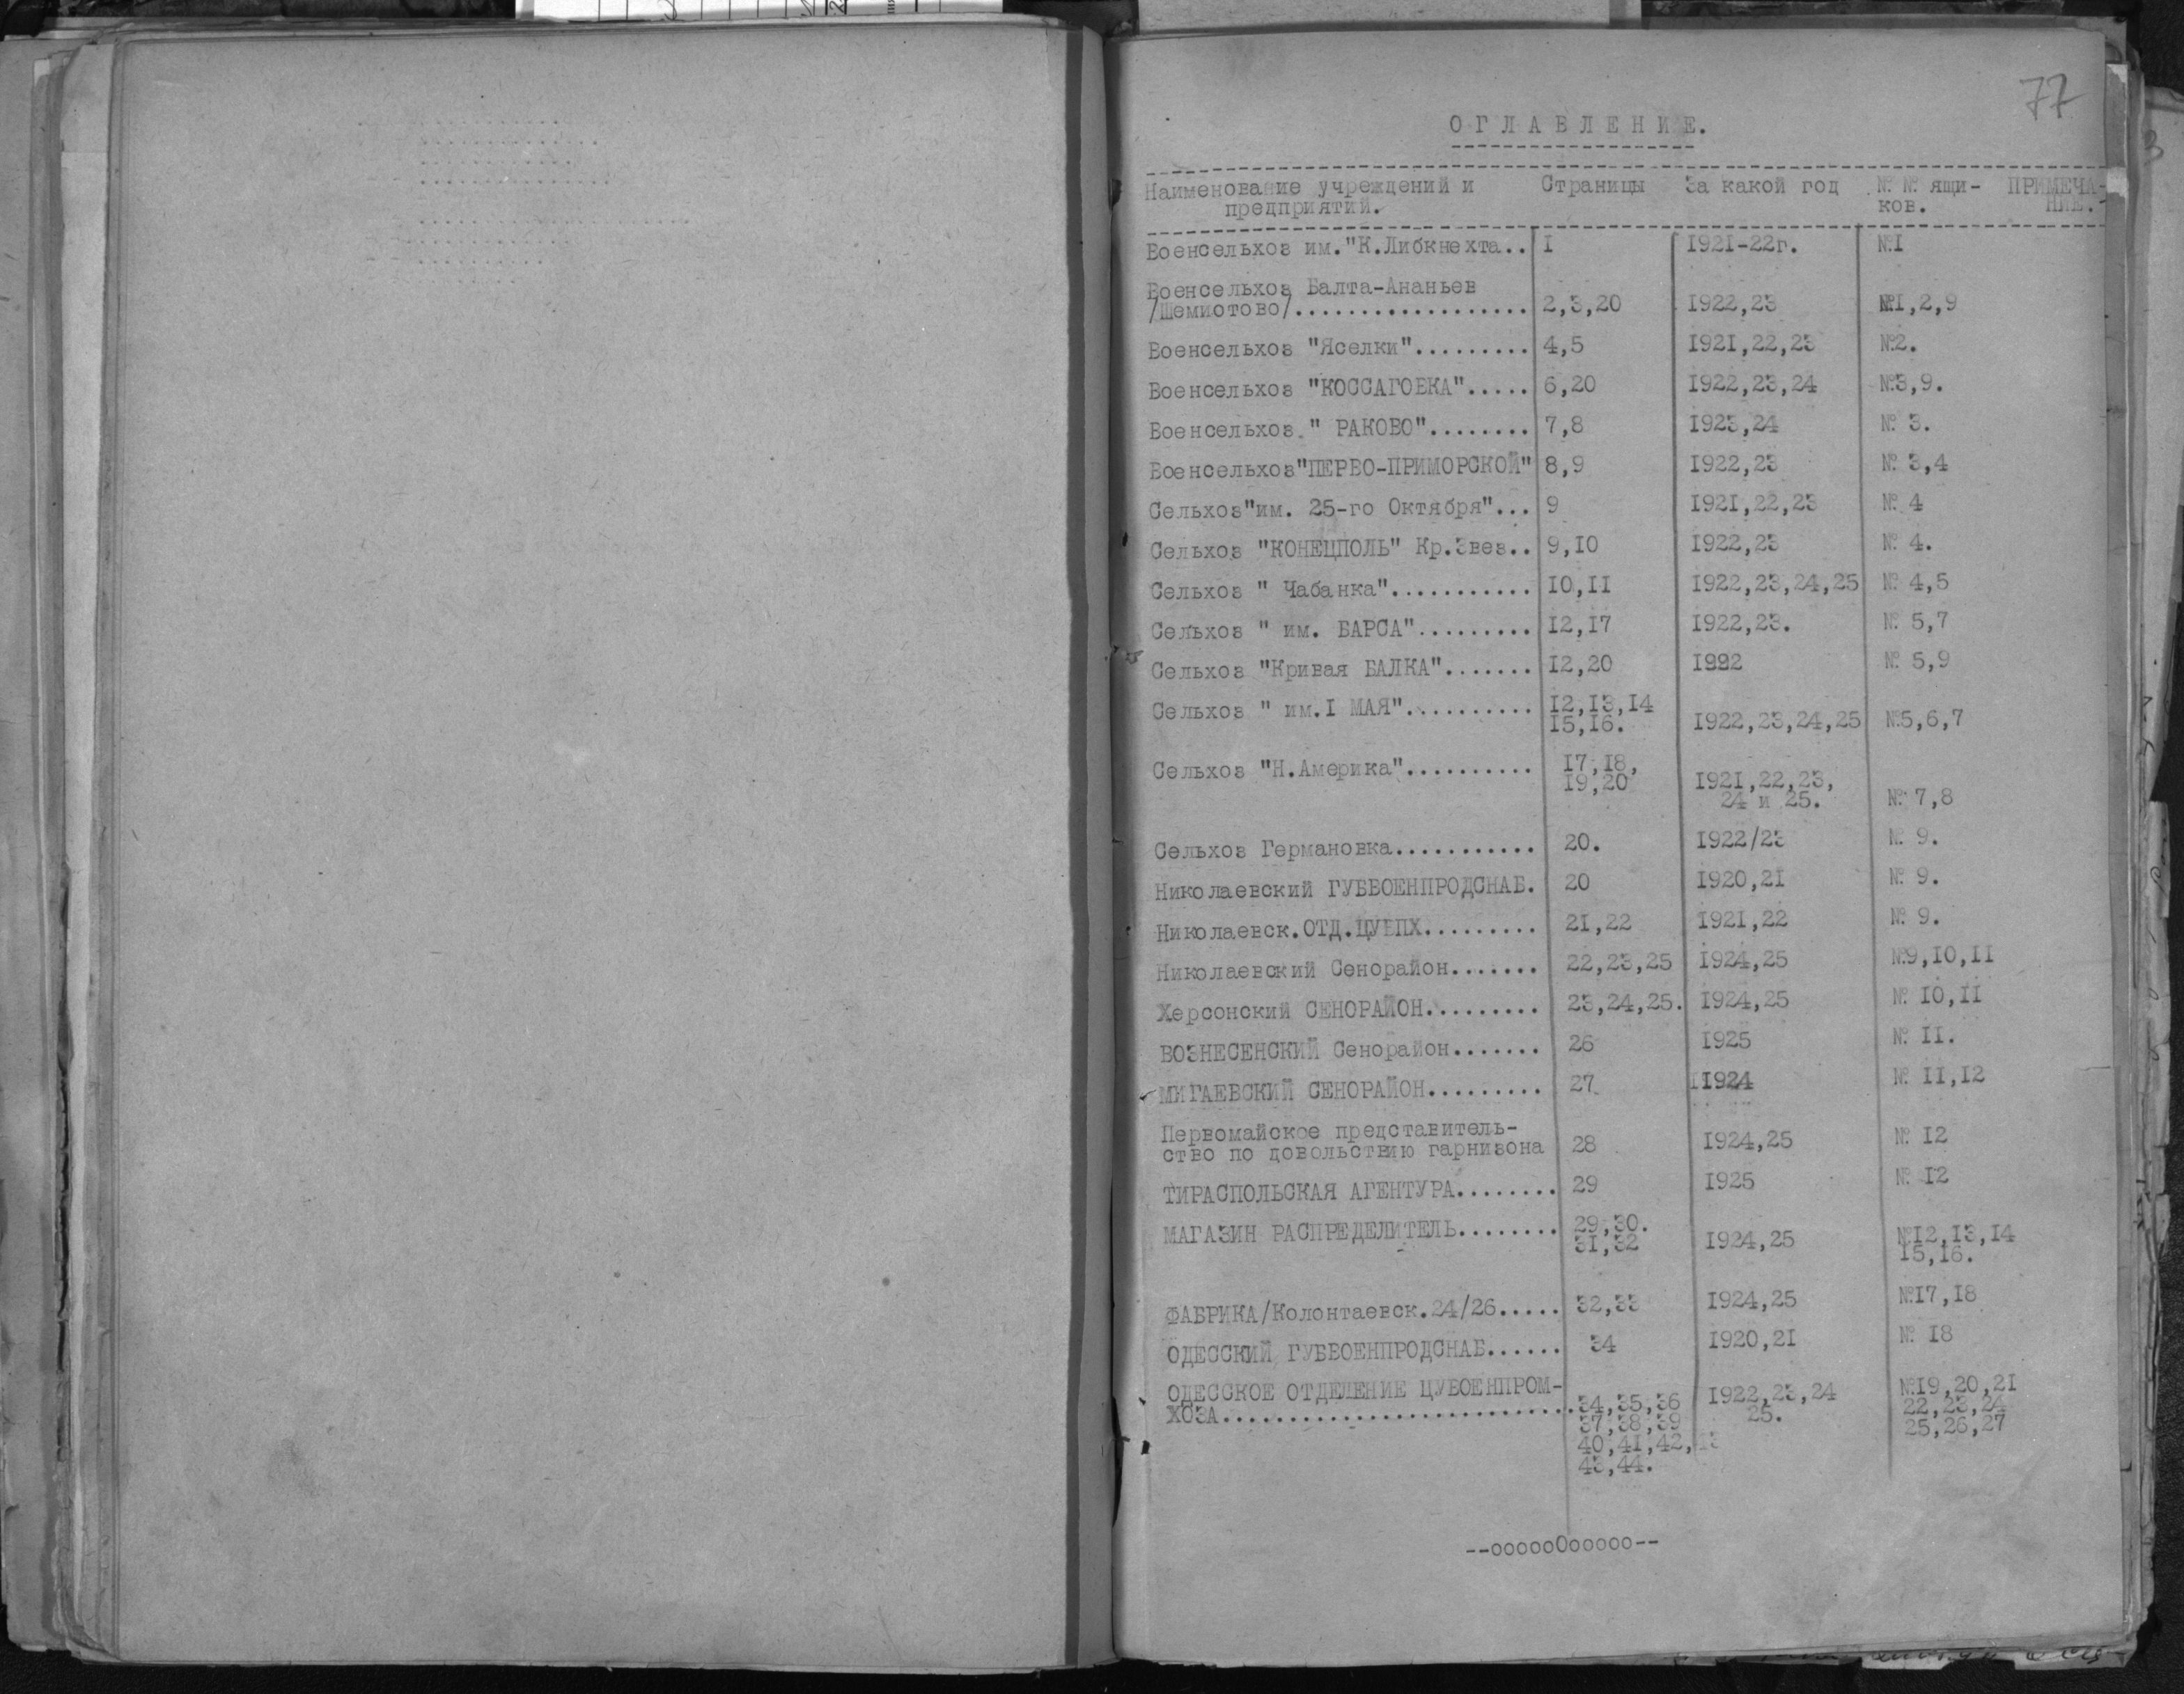 77
ОГЛАВЛЕНИЕ.
Наименование учреждений и предприятий. Страницы За какой год №№ ящиков. ПРИМЕЧАНИЕ.
Военсельхоз им."К.Либкнехта.. 1 1921-22г. №1
Военсельхоз Балта-Ананьев
/Шемиотово/.................. 2,3,20 1922,23 №1,2,9
Военсельхоз "Яселки"......... 4,5 1921,22,23 №2.
Военсельхоз "КОССАГОВКА"..... 6,20 1922,23,24 №3,9.
Военсельхоз." РАКОВО"........ 7,8 1923,24 № 3.
Военсельхоз"ПЕРВО-ПРИМОРСКОЙ" 8,9 1922,23 № 3,4
Сельхоз"им. 25-го Октября"... 9 1921,22,23 № 4
Сельхоз "КОНЕЦПОЛЬ" Кр.Звез.. 9,10 1922,23 № 4.
Сельхоз " Чабанка"........... 10,11 1922,23,24,25 № 4,5
Сельхоз " им. БАРСА"......... 12,17 1922,23. № 5,7
Сельхоз "Кривая БАЛКА"....... 12,20 1922 № 5,9
Сельхоз " им.1 МАЯ".......... 12,13,14
15,16. 1922,23,24,25 №5,6,7
Сельхоз "Н.Америка".......... 17,18,
19,20 1921,22,23,
24 и 25. № 7,8
Сельхоз Германовка........... 20. 1922/23 № 9.
Николаевский ГУБВОЕНПРОДСНАБ. 20 1920,21 № 9.
Николаевск.ОТД.ЦУВПХ......... 21,22 1921,22 № 9.
Николаевский Сенорайон....... 22,23,25 1924,25 №9,10,11
Херсонский СЕНОРАЙОН......... 23,24,25. 1924,25 № 10,11
ВОЗНЕСЕНСКИЙ Сенорайон....... 26 1925 № 11.
МИГАЕВСКИЙ СЕНОРАЙОН......... 27 1924 № 11,12
Первомайское представитель-
ство по довольствию гарнизона 28 1924,25 № 12
ТИРАСПОЛЬСКАЯ АГЕНТУРА........ 29 1925 № 12
МАГАЗИН РАСПРЕДЕЛИТЕЛЬ........ 29,30.
31,32 1924,25 №12,13,14
15,16.
ФАБРИКА/Колонтаевск.24/26..... 32,33 1924,25 №17,18
ОДЕССКИЙ ГУБВОЕНПРОДСНАБ...... 34 1920,21 № 18
ОДЕССКОЕ ОТДЕЛЕНИЕ ЦУВОЕНПРОМ-
ХОЗА........................... 34,35,36 1922,23,24 №19,20,21
37,38,39 25. 22,23,24
40,41,42, 25,26,27
43,44.
--оооооОооооо--